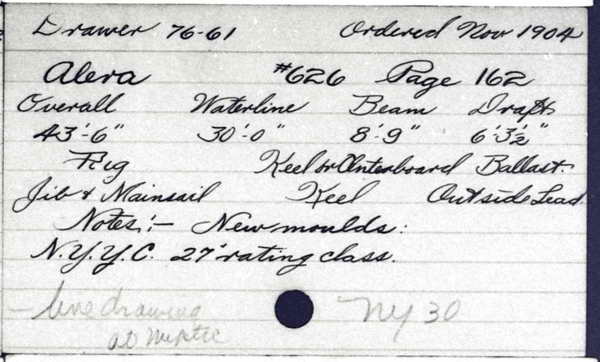 Drawer 76-61 Ordered Nov 1904
Alera #626 Page 162
Overall Waterline Beam Draft
43'-6" 30'-0" 8'-9" 6'-3½"
Rig Keel or Centerboard Ballast.
Jib & Mainsail Keel Outside Lead
Notes:- New moulds:
N.Y.Y.C. 27' rating class.
- line drawing NY 30
at Mystic